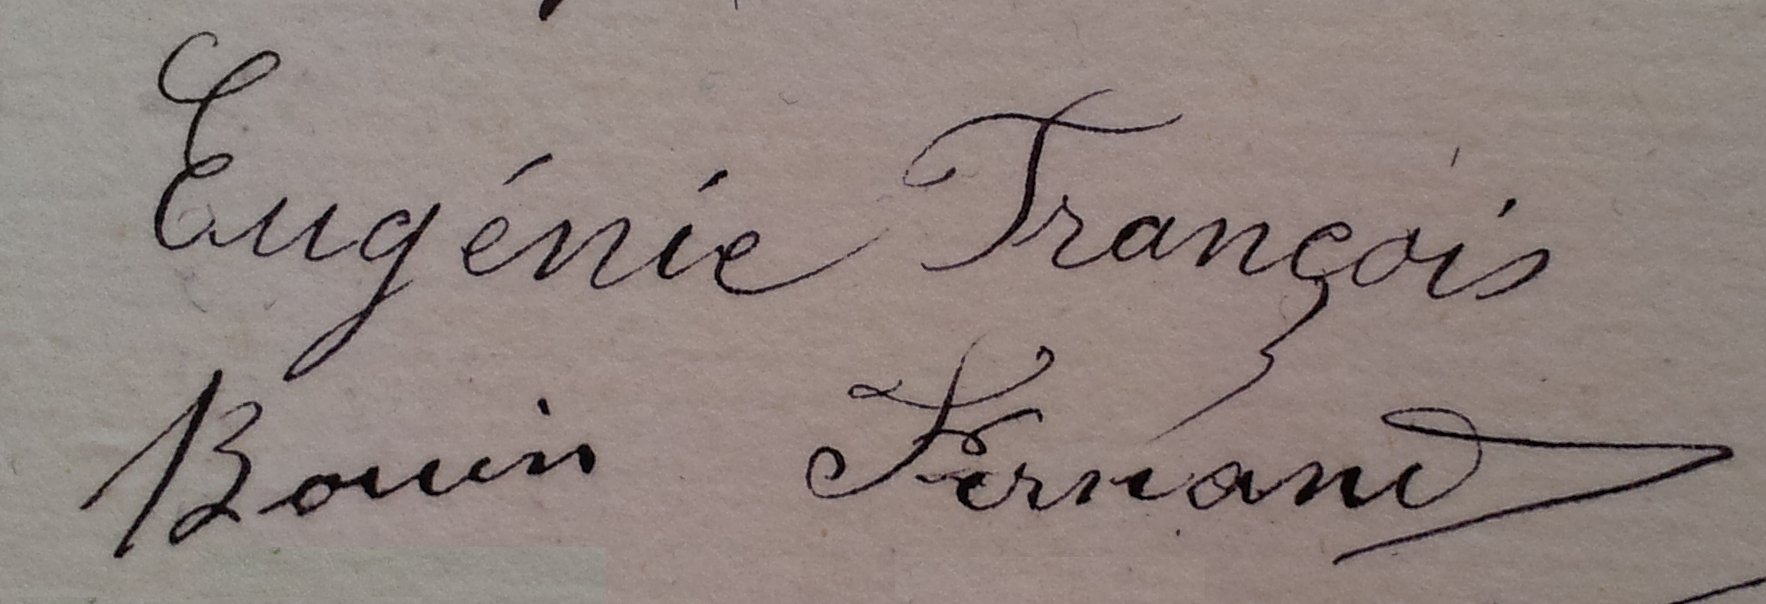 Eugénie François
Bouin Fernand